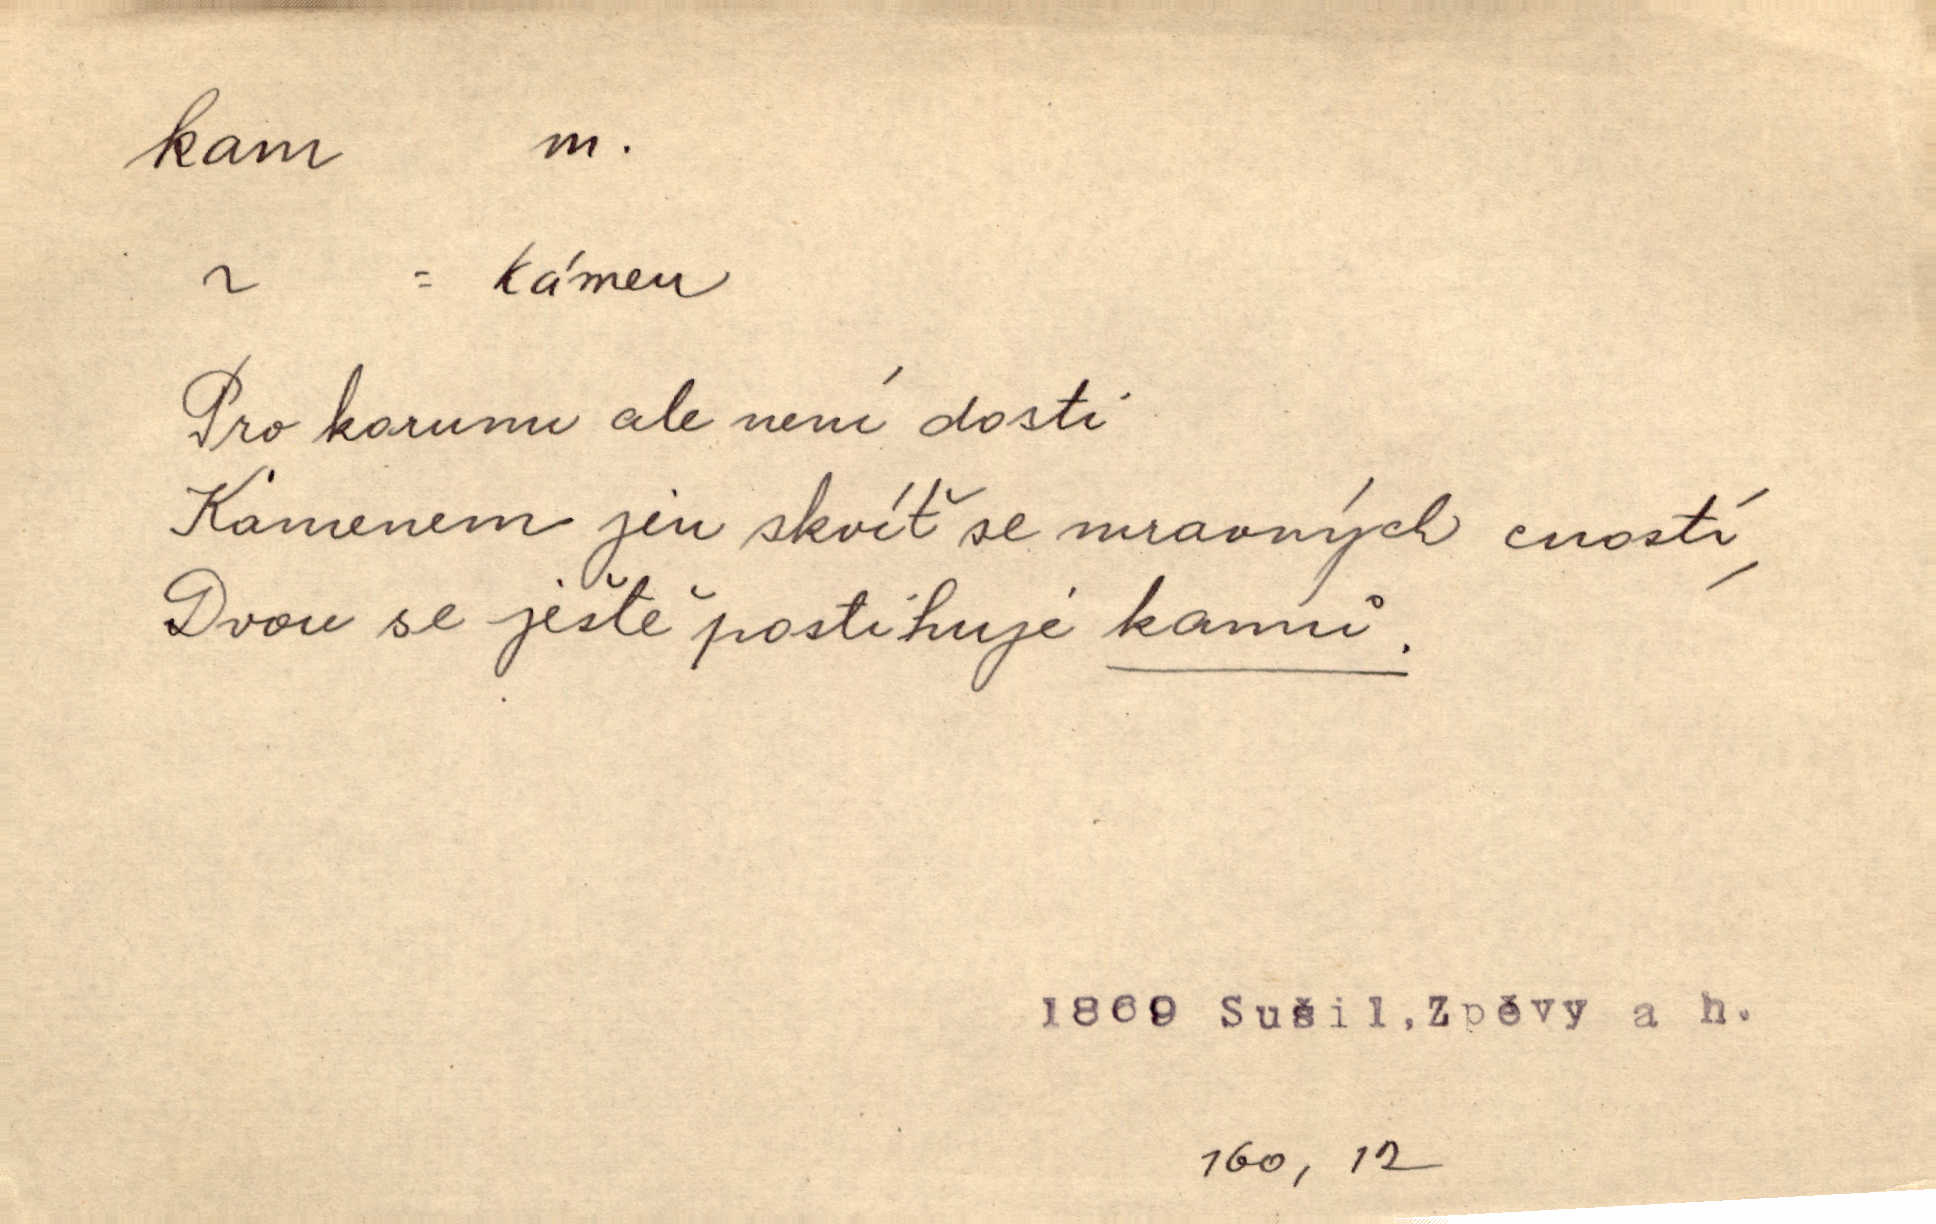 kam m.
~ = kámen
Pro korunu ale není dosti
Kamenem jen skvíť se mravných cností,
Dvou se ještě postihuje kamů.
1869 Sušil, Zpěvy a h.
160, 12